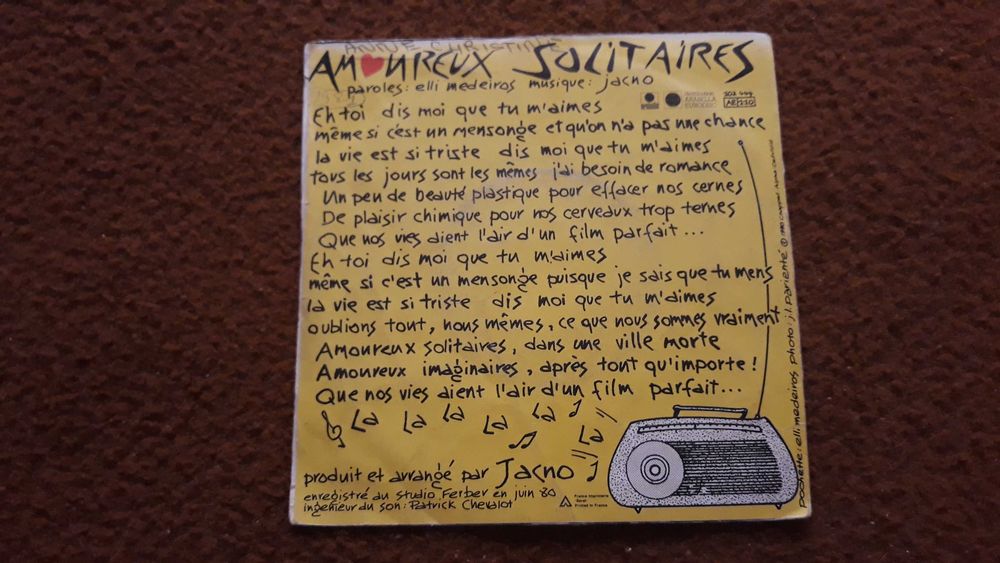 ANNE CHRISTINE
AMOUREUX SOLITAIRES
paroles: elli medeiros musique: jacno
Eh toi dis moi que tu m'aimes
même si c'est un mensonge et qu'on n'a pas une chance
la vie est si triste dis moi que tu m'aimes
tous les jours sont les mêmes j'ai besoin de romance
Un peu de beauté plastique pour effacer nos cernes
De plaisir chimique pour nos cerveaux trop ternes
Que nos vies aient l'air d'un film parfait...
Eh toi dis moi que tu m'aimes
même si c'est un mensonge puisque je sais que tu mens
la vie est si triste dis moi que tu m'aimes
oublions tout, nous mêmes, ce que nous sommes vraiment
Amoureux solitaires, dans une ville morte
Amoureux imaginaires, après tout qu'importe!
Que nos vies aient l'air d'un film parfait...
La La La La La La
produit et arrangé par Jacno
enregistré au studio Ferber en juin 80
ingenieur du son: Patrick Chevalot
France Imprimerie
Printed in France
ARABELLA
EURODISC
102 444
AR/210
pochette: elli medeiros photo: j.l. Parienté © 1980